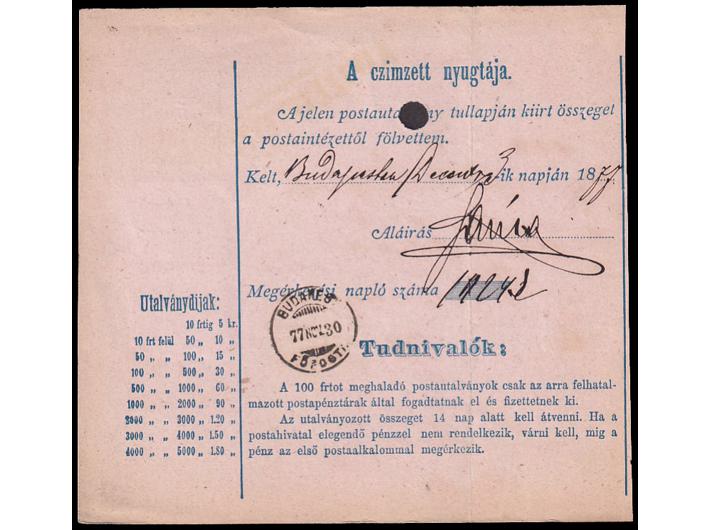 A czimzett nyugtája.
A jelen postauta ny tullapján kiirt összeget
a postaintézettől fölvettem.
Kelt, Budapesten December 3 ik napján 1877
Aláírás
Megérkezési napló száma
BUDAPEST
77 NOV. 30
FŐPOSTA
Utalványdijak:
10 frtig 5 kr.
10 frt felül 50 „ 10 „
50 „ „ 100 „ 15 „
100 „ „ 500 „ 30 „
500 „ „ 1000 „ 60 „
1000 „ „ 2000 „ 90 „
2000 „ „ 3000 „ 1.20 „
3000 „ „ 4000 „ 1.50 „
4000 „ „ 5000 „ 1.80 „
Tudnivalók:
A 100 frtot meghaladó postautalványok csak az arra felhatal-
mazott postapénztárak által fogadtatnak el és fizettetnek ki.
Az utalványozott összeget 14 nap alatt kell átvenni. Ha a
postahivatal elegendő pénzzel nem rendelkezik, várni kell, mig a
pénz az első postaalkalommal megérkezik.